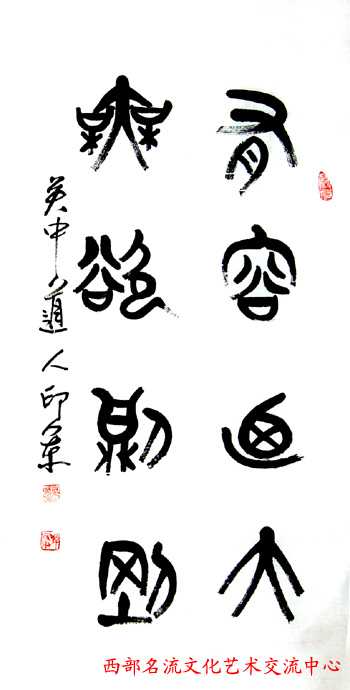 有容迺大
無欲則剛
中 人印
西部名流文化艺术交流中心